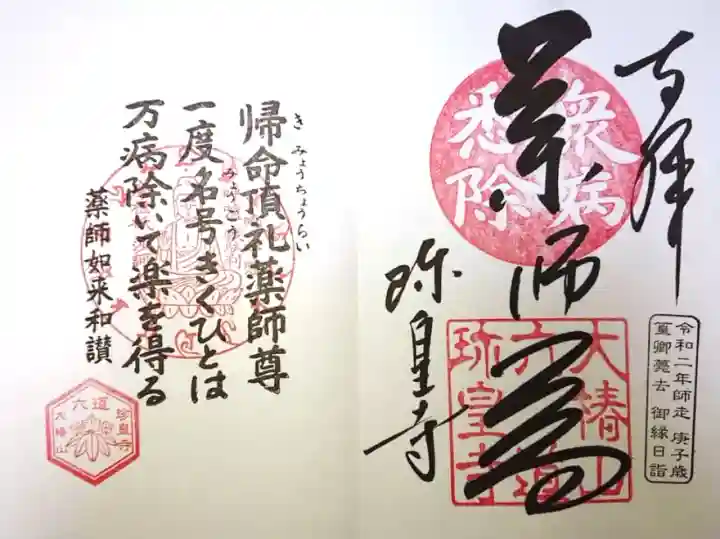 奉拝
衆病
悉除
薬師尊
大椿山
六道
珍皇寺
珎皇寺
令和二年師走 庚子歳
篁卿薨去 御縁日詣
帰命頂礼薬師尊
き みょうちょうらい
一度名号きくひとは
みょうごう
万病除いて楽を得る
薬師如来和讃
六道
珍皇寺
大椿山